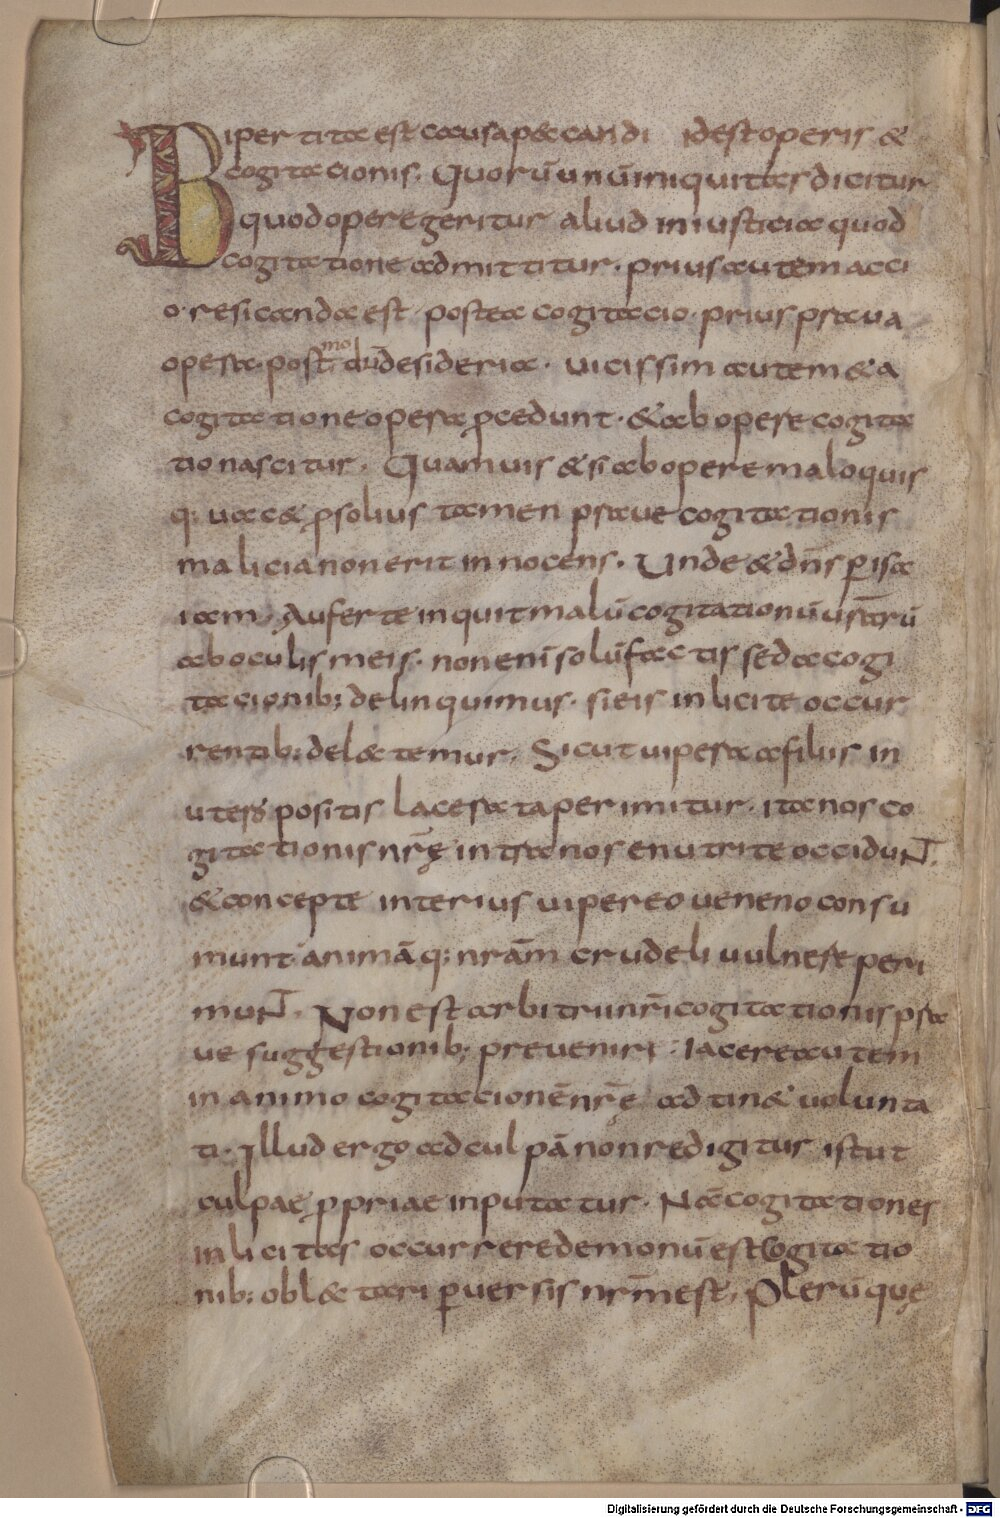 Bipertita est causa peccandi idest operis &
cogitacionis. Quorū unū iniquitas dicitur
quod opere geritur aliud iniusticia quod
cogitatione admittitur. prius autem acci
o. resicanda est. postea cogitacio. prius praua
opera. post mo dū desideria. uicissim autem & a
cogitatione opera ꝓcedunt. & ab opere cogita
tio nascitur. Quamuis & si ab opere malo quis
q; uac& ꝓ solius tamen praue cogitationis
malicia non erit innocens. Unde & dn̄s ꝑ isa
iam. Auferte inquit malū cogitationū uestrarū
ab oculis meis. non enī solū factis sed & cogi
tacionib; delinquimus. si eis inlicite occur
rentib; delectemur. Sicut uipera a filiis in
utero positis lacerata perimitur. ita nos co
gitationis nr̄ę intra nos enutrite occiduNT.
& concepte interius uipereo ueneno consu
munt animā q; nrām crudeli uulnere peri
muNT. Non est arbitrii nr̄i cogitationis pra
ue suggestionib; preueniri. Iacere autem
in animo cogitacionē nr̄ę adtin& uolunta
ti. Illud ergo ad culpā non redigitur istut
culpae ꝓpriae inputatur. Nā cogitationes
inlicitas occurrere demonū est Cogitatio
nib; obl&tari ꝑuersis nr̄m est. Plerūque